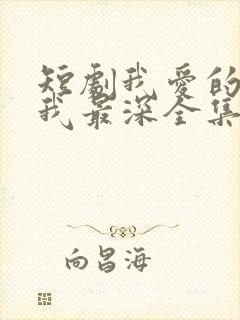 短劇我愛的
我最深全集
向昌海